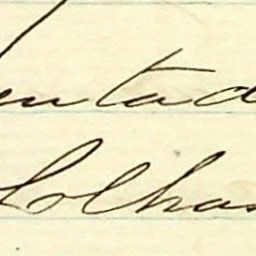 entad
folhas